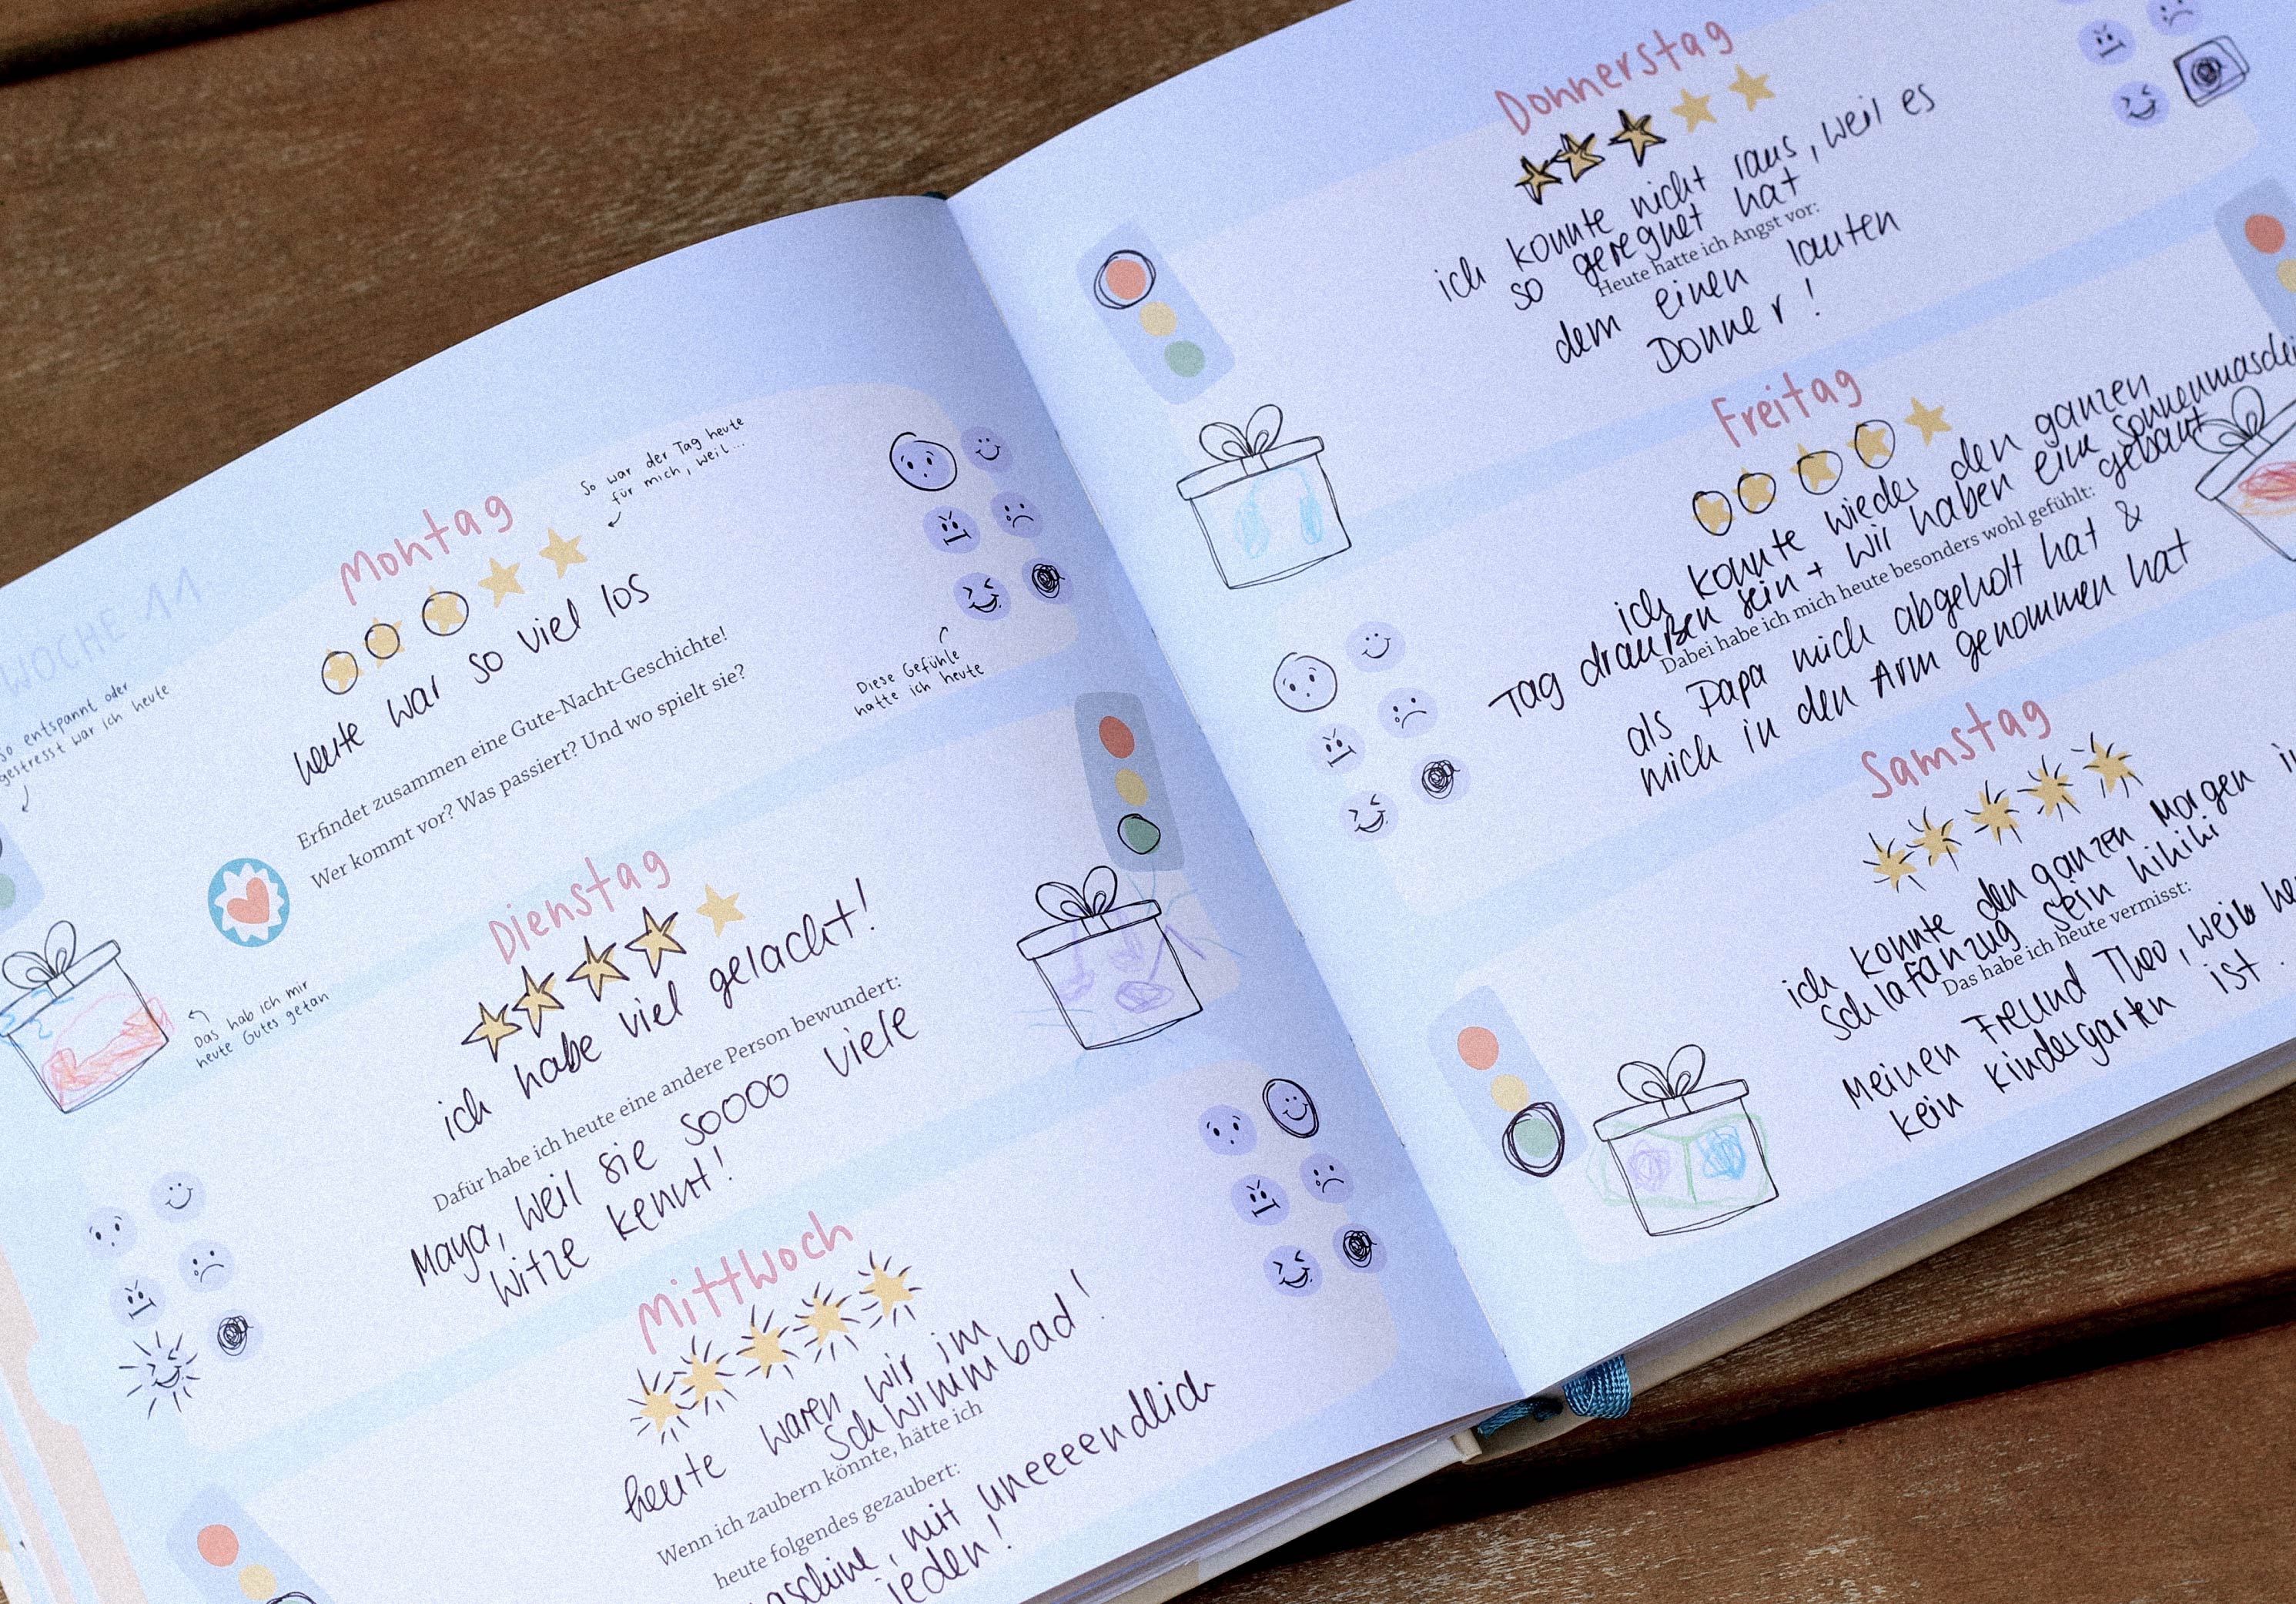 WOCHE 11
So entspannt oder
gestresst war ich heute
Montag
So war der Tag heute
für mich, weil...
heute war so viel los
Erfindet zusammen eine Gute-Nacht-Geschichte!
Wer kommt vor? Was passiert? Und wo spielt sie?
Diese Gefühle
hatte ich heute
Das hab ich mir
heute Gutes getan
Dienstag
ich habe viel gelacht!
Dafür habe ich heute eine andere Person bewundert:
Maya, weil sie soooo viele
Witze kennt!
Mittwoch
heute waren wir im
Schwimmbad!
Wenn ich zaubern könnte, hätte ich
heute folgendes gezaubert:
mit uneeeendlich
jeden!
Donnerstag
ich konnte nicht raus, weil es
so geregnet hat
Heute hatte ich Angst vor:
dem einen lauten
Donner!
Freitag
ich konnte wieder den ganzen
Tag draußen sein + wir haben eine
gebaut
Dabei habe ich mich heute besonders wohl gefühlt:
als Papa mich abgeholt hat &
mich in den Arm genommen hat
Samstag
ich konnte den ganzen Morgen
Schlafanzug sein hihihi
Das habe ich heute vermisst:
Meinen Freund Theo, weil
kein kindergarten ist.